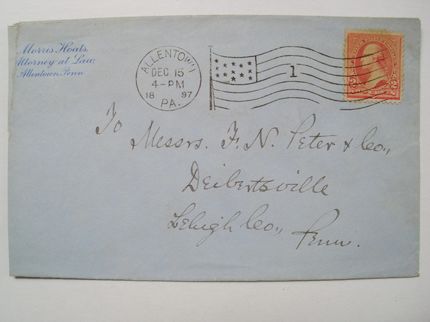 Morris Hoats,
Attorney at Law,
Allentown, Penn
ALLENTOWN
DEC 15
4-PM
18 97
PA.
1
2 2
To Messrs. F. N. Peter & Co.,
Deibertsville
Lehigh Co.,
Penn.